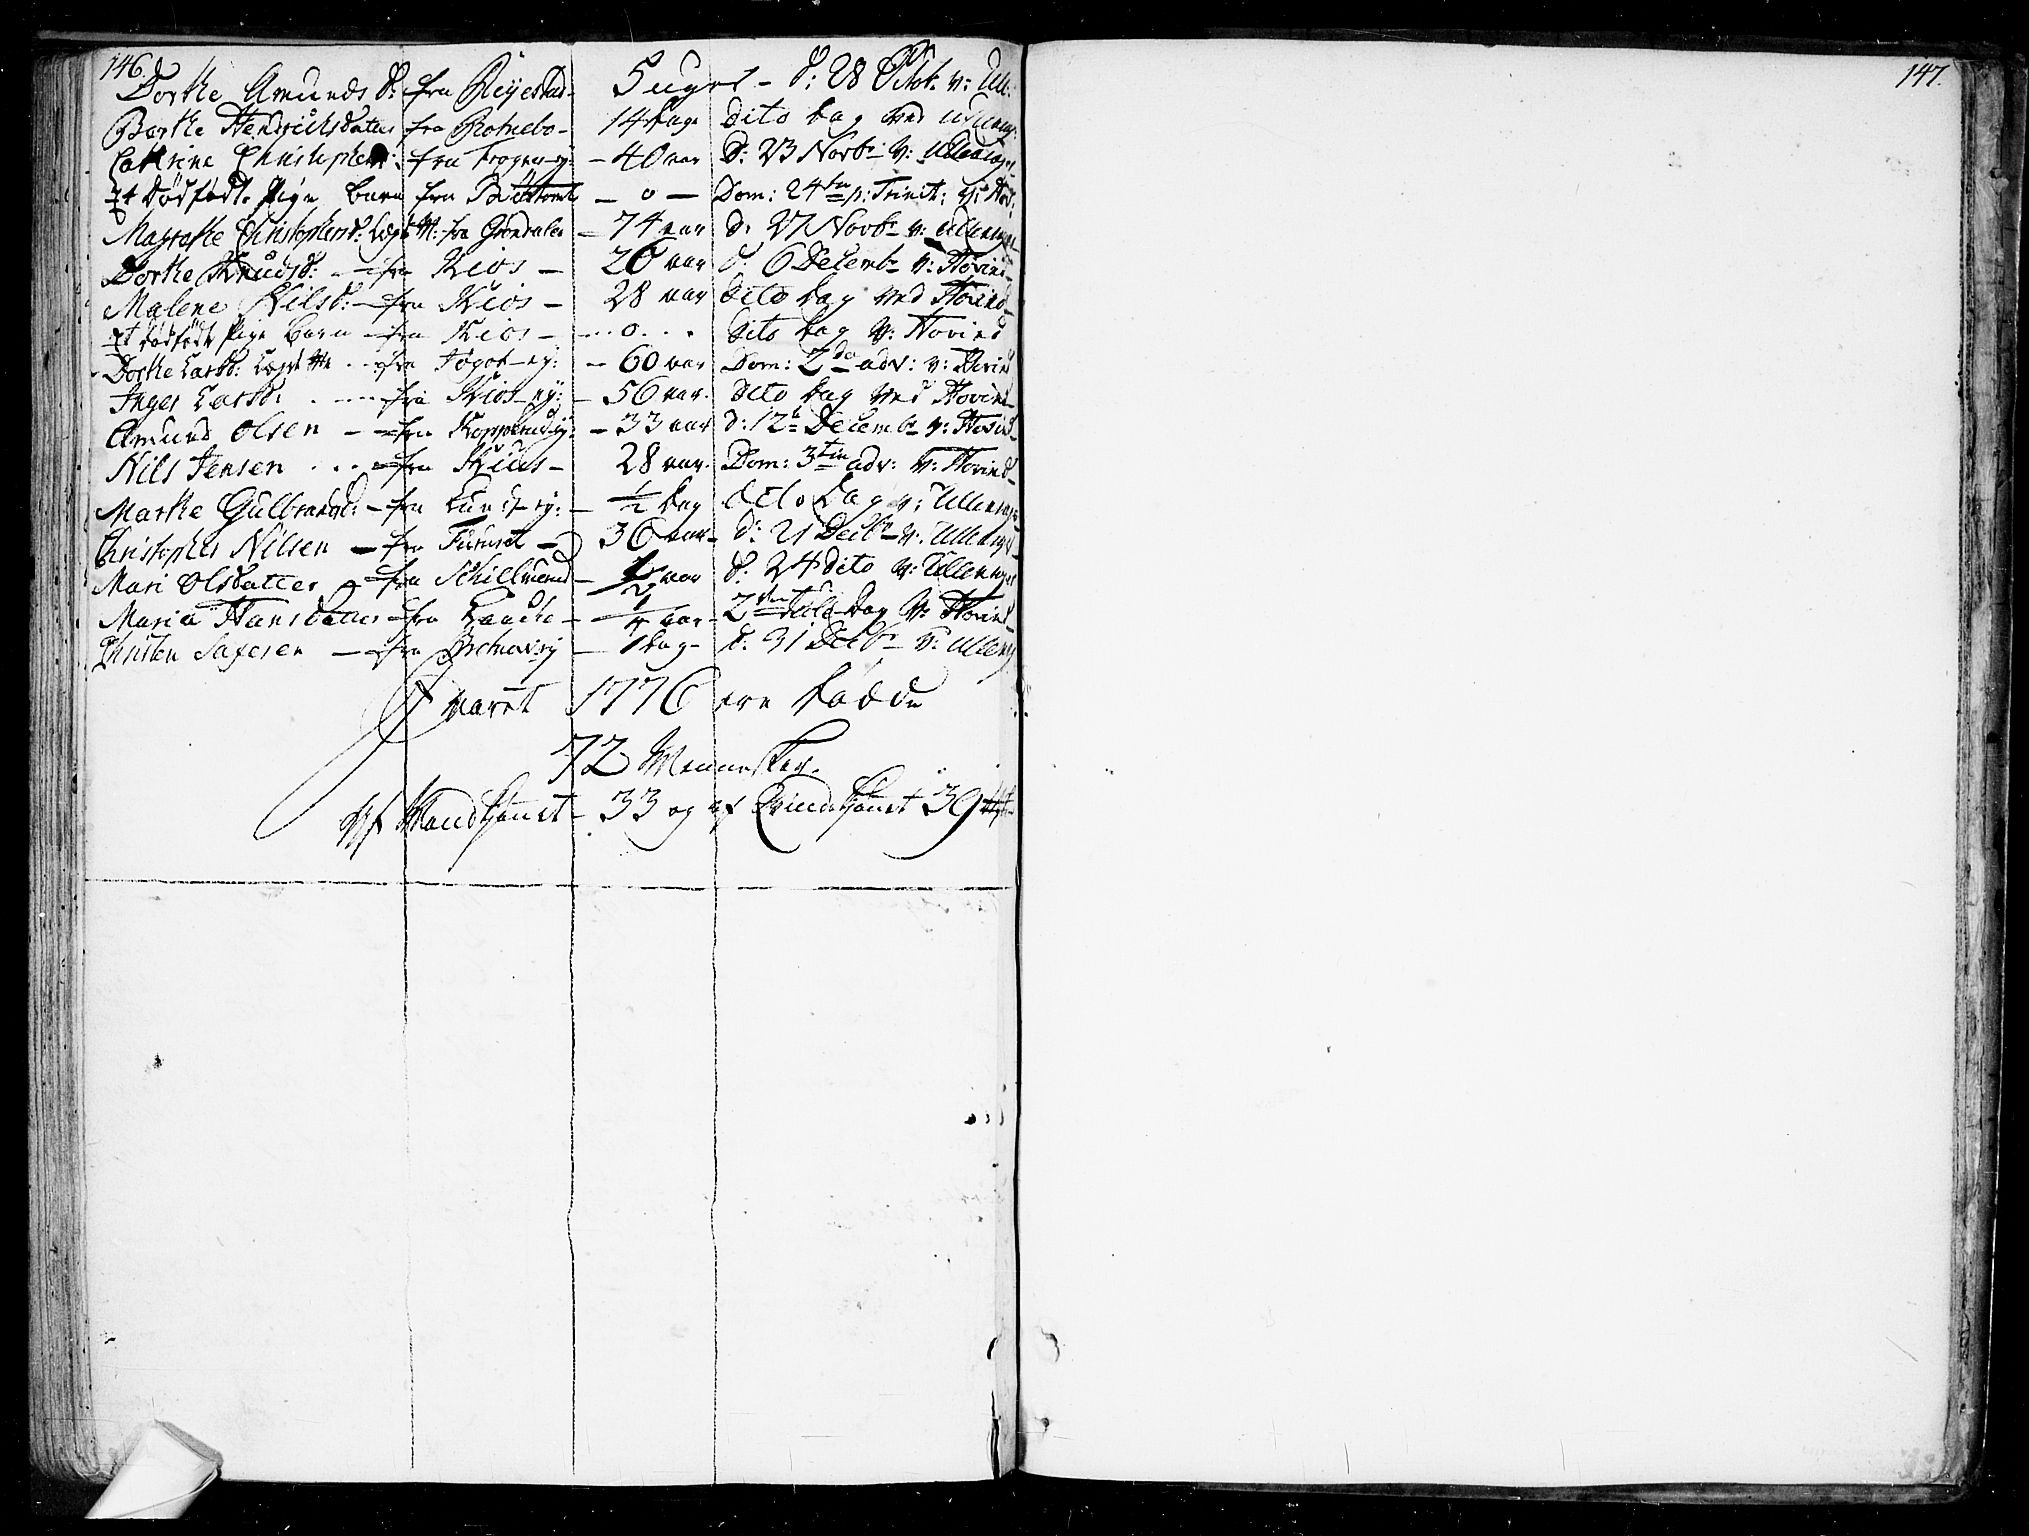 146.
147.
Dorthe Amunds D: fra Reyestad- 5 uger - d: 28 Octob. v: Ull:
Berthe Hendrichsdatter fra Rotnebo- 14 dage dito dag ved Ullensag:
Cathrine Christophers: fra Trogen-ey: - 40 aar d: 23 Novbr v: Ullensager
Et dødfødt Pige barn fra - 0 - Dom: 24de p: Trinit: v: Hov:
Magrethe Christophersd: Lægd M: fra Grøndalen - 74 aar d: 27 Novbr v: Ullensager
Dorthe Knudsd: - fra Kios - 26 aar d: 6 Decembr v: Hovind
Malene Nilsd: - fra Kios - 28 aar dito dag ved Hovind
Et dødfødt Pige barn - fra Kios - ... 0 ... dito dag v: Hovind
Dorthe Larsd: Lægd M: .. fra Føgot-ey: - 60 aar Dom: 2da adv: v: Hovind
Inger Larsd: .... fra Kios-ey: - 56 aar. dito dag ved Hovind
Amund Olsen - fra Kopperudey: - 33 aar d: 12te Decembr v: Hovind
Nils Jensen ... fra Kios - 28 aar. Dom: 3tia adv: v: Hovind
Marthe Gulbrandsd: - fra Lund-ey: - 1/2 dag dito dag v: Ullensager
Christopher Nilsen - fra Furuset - 36 aar - d: 21 Decbr v: Ullensager
Mari Olsdatter - fra - 1/2 aar d: 24 dito v: Ullensager
Maria Hansdatter - fra - 1/4 aar - 2den Jule Dag v: Hovind
Christen Saxesen - fra - 1 dag - d: 31 Decbr v: Ullensag
I aaret 1776 ere døde
72 Mennesker.
Af Mandkjønet - 33 og af Qvindekjønet 39